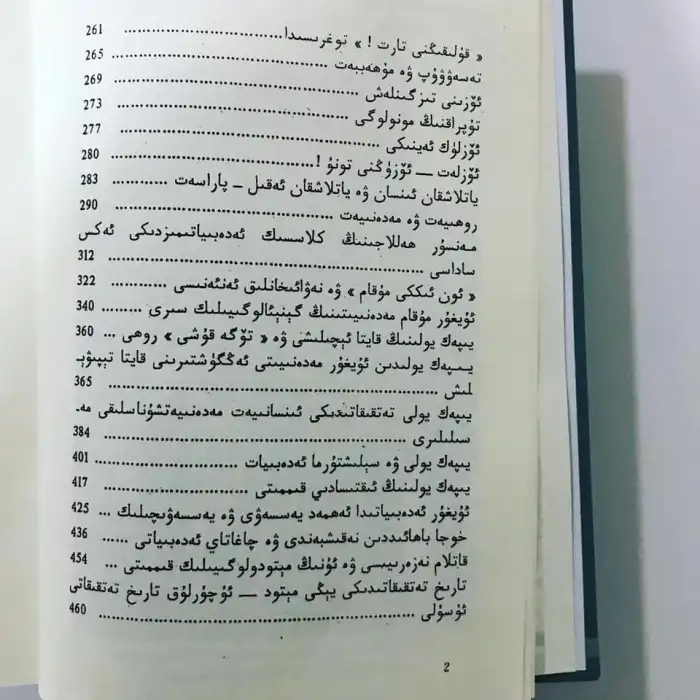 « قۇلىقىڭنى تارت ! » توغرىسىدا .............................. 261
تەسەۋۋۇپ ۋە مۇھەببەت .............................. 265
ئۆزىنى تىزگىنلەش .............................. 269
تۇپراقنىڭ مونولوگى .............................. 273
ئۆزلۈك ئەينىكى .............................. 277
ئۆزلەت — ئۆزۈڭنى تونۇ ! .............................. 280
ياتلاشقان ئىنسان ۋە ياتلاشقان ئەقىل - پاراسەت ............ 283
روھىيەت ۋە مەدەنىيەت .............................. 290
مەنسۇر ھەللاجىنىڭ كلاسسىك ئەدەبىياتىمىزدىكى ئەكس
ساداسى .............................. 312
« ئون ئىككى مۇقام » ۋە نەۋائىخانلىق ئەنئەنىسى ............ 322
ئۇيغۇر مۇقام مەدەنىيىتىنىڭ گېنېئالوگىيىلىك سىرى ......... 340
يىپەك يولىنىڭ قايتا ئېچىلىشى ۋە « تۆگە قۇشى » روھى ... 360
يىپەك يولىدىن ئۇيغۇر مەدەنىيىتى ئەڭگۈشتىرىنى قايتا تېپىۋې-
لىش .............................. 365
يىپەك يولى تەتقىقاتىدىكى ئىنسانىيەت مەدەنىيەتشۇناسلىقى مە-
سىلىلىرى .............................. 384
يىپەك يولى ۋە سېلىشتۇرما ئەدەبىيات .............................. 401
يىپەك يولىنىڭ ئىقتىسادىي قىممىتى .............................. 417
ئۇيغۇر ئەدەبىياتىدا ئەھمەد يەسسەۋى ۋە يەسسەۋىچىلىك ... 425
خوجا باھائىددىن نەقىشبەندى ۋە چاغاتاي ئەدەبىياتى ...... 436
قاتلام نەزەرىيىسى ۋە ئۇنىڭ مېتودولوگىيىلىك قىممىتى ... 454
تارىخ تەتقىقاتىدىكى يېڭى مېتود — ئۇچۇرلۇق تارىخ تەتقىقاتى
ئۇسۇلى .............................. 460
2